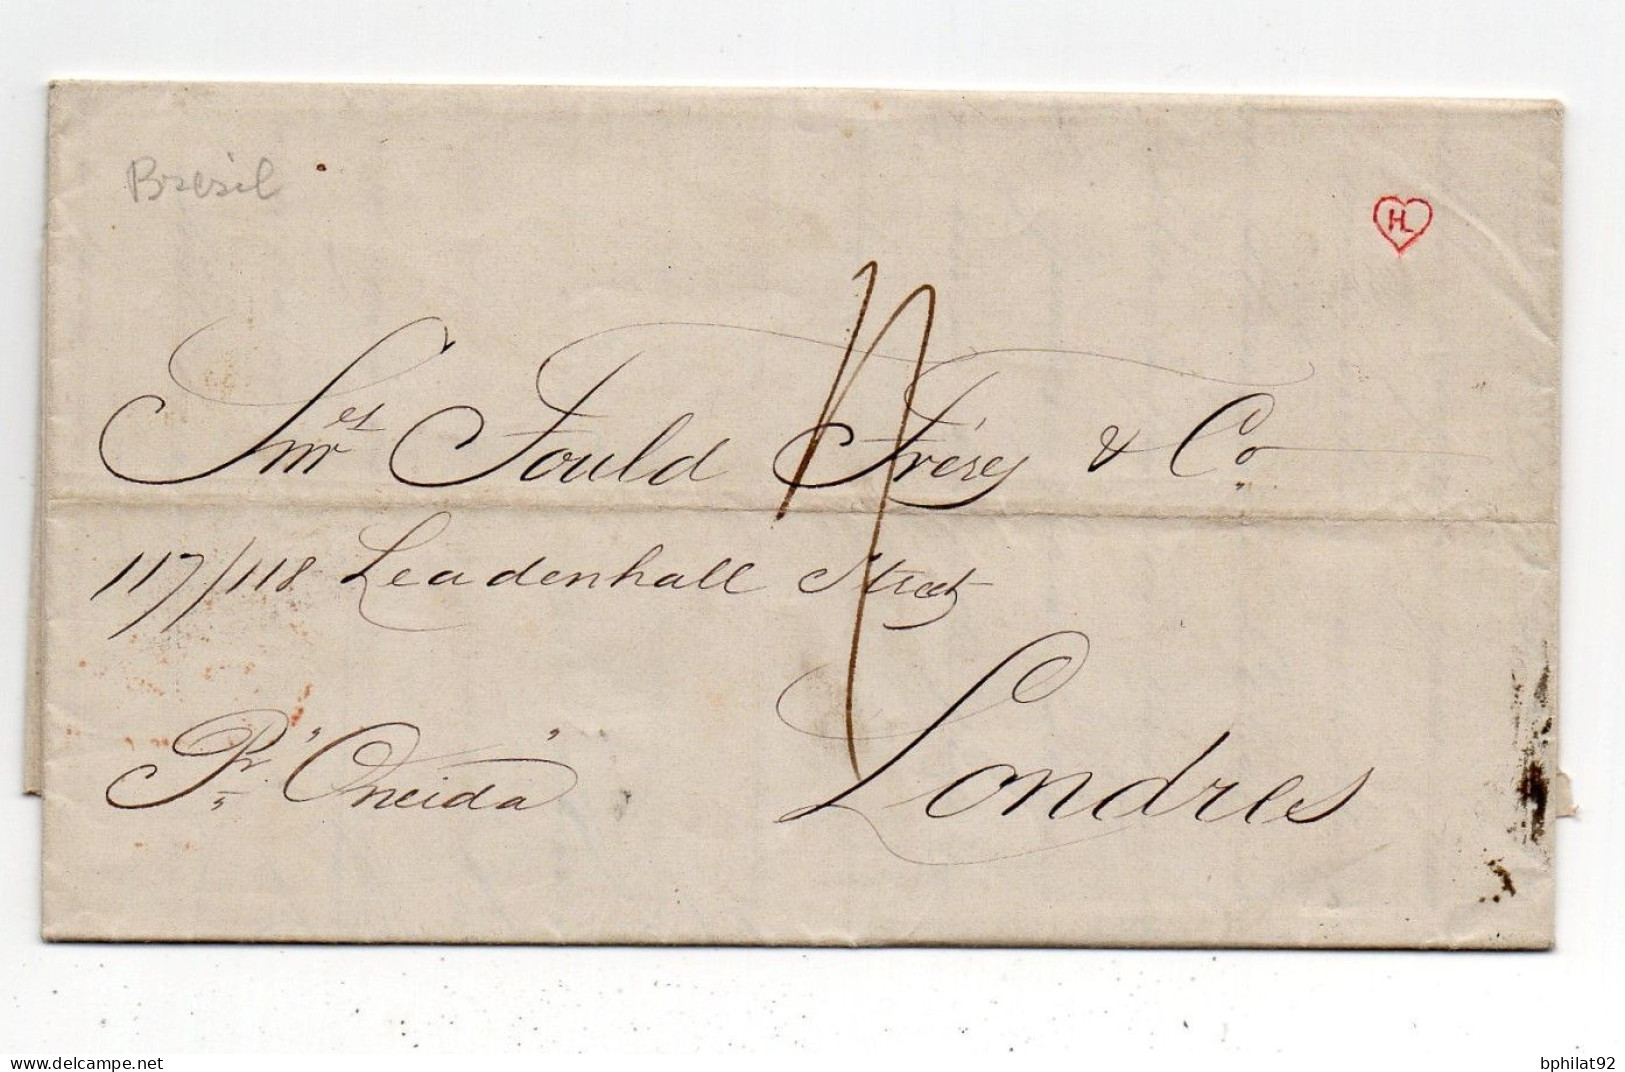 Bresil
HL
Snres Fould Frères & Co.
117/118 Leadenhall Street
Pr "Oneida"
Londres
delcampe.net
bphilat92